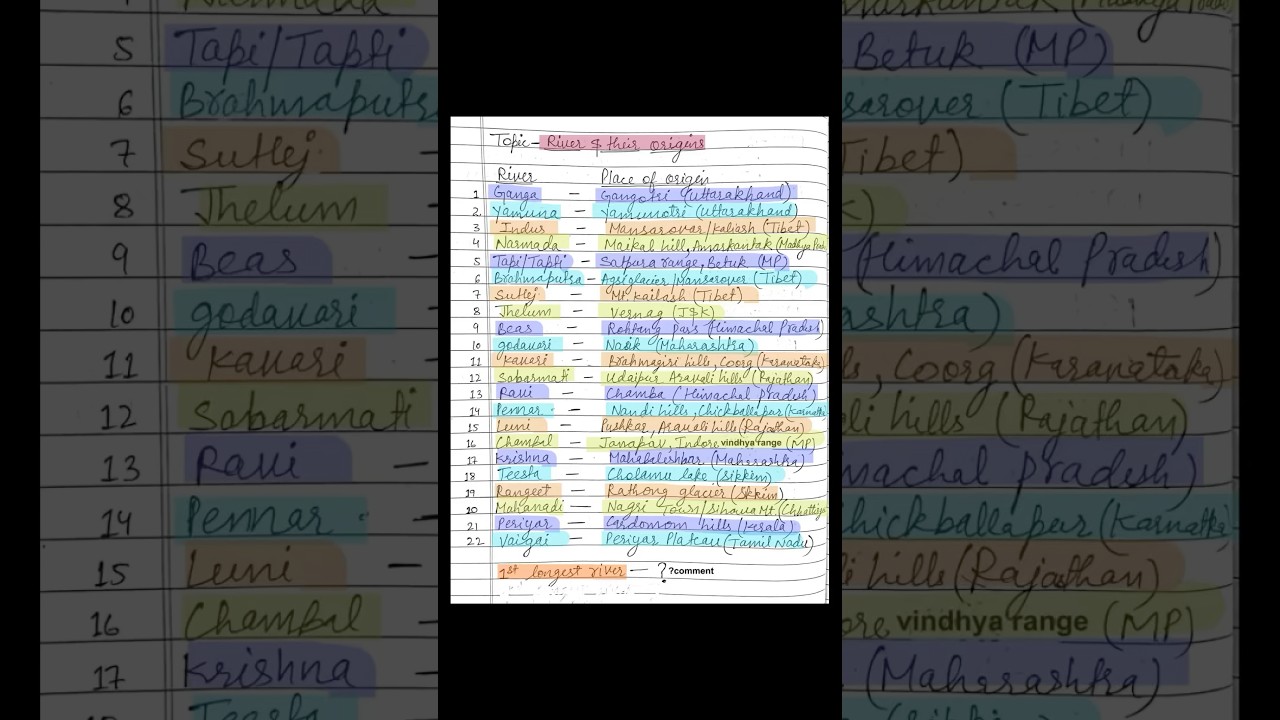 Topic - River & their origins
River Place of origin
1 Ganga - Gangotri (Uttarakhand)
2 Yamuna - Yamunotri (Uttarakhand)
3 Indus - Mansarovar/Kaliash (Tibet)
4 Narmada - Maikal hill, Amarkantak (Madhya
5 Tapi/Tapti - Satpura range, Betuk (MP)
6 Brahmaputra - Agsi glacier/Mansarover (Tibet)
7 Sutlej - Mt Kailash (Tibet)
8 Jhelum - Vernag (J&K)
9 Beas - Rohtang Pass (Himachal Pradesh)
10 godavari - Nasik (Maharashtra)
11 Kaveri - Brahmagiri hills, Coorg (Karanataka)
12 Sabarmati - Udaipur Aravali hills (Rajathan)
13 Ravi - Chamba (Himachal pradesh)
14 Pennar - Nandi hills, Chickballapur (Karnatka
15 Luni - Pushkar, Aravali hills (Rajathan)
16 Chambal - Janapav, Indore vindhya range (MP)
17 Krishna - Mahabaleshwar (Maharashtra)
18 Teesta - Cholamu lake (Sikkim)
19 Rangeet - Rathong glacier (Sikkim)
20 Mahanadi - Nagri Town/Sihawa Mt (Chhattisga
21 Periyar - Cardomom hills (Kerala)
22 Vaigai - Periyar Plateau (Tamil Nadu)
1st longest river - ? ?comment
5 Tapi/Tapti Betuk (MP)
6 Brahmaputra sarover (Tibet)
7 Sutlej - Tibet)
8 Jhelum
9 Beas (Himachal Pradesh)
10 godavari ashtra)
11 Kavari ls, Coorg (Karanataka)
12 Sabarmati ali hills (Rajathan)
13 Ravi - machal pradesh)
14 Pennar chickballapur (Karnatka
15 Luni - i hills (Rajathan)
16 Chambal ore vindhya range (MP)
17 Krishna - (Maharashtra)
Teesta